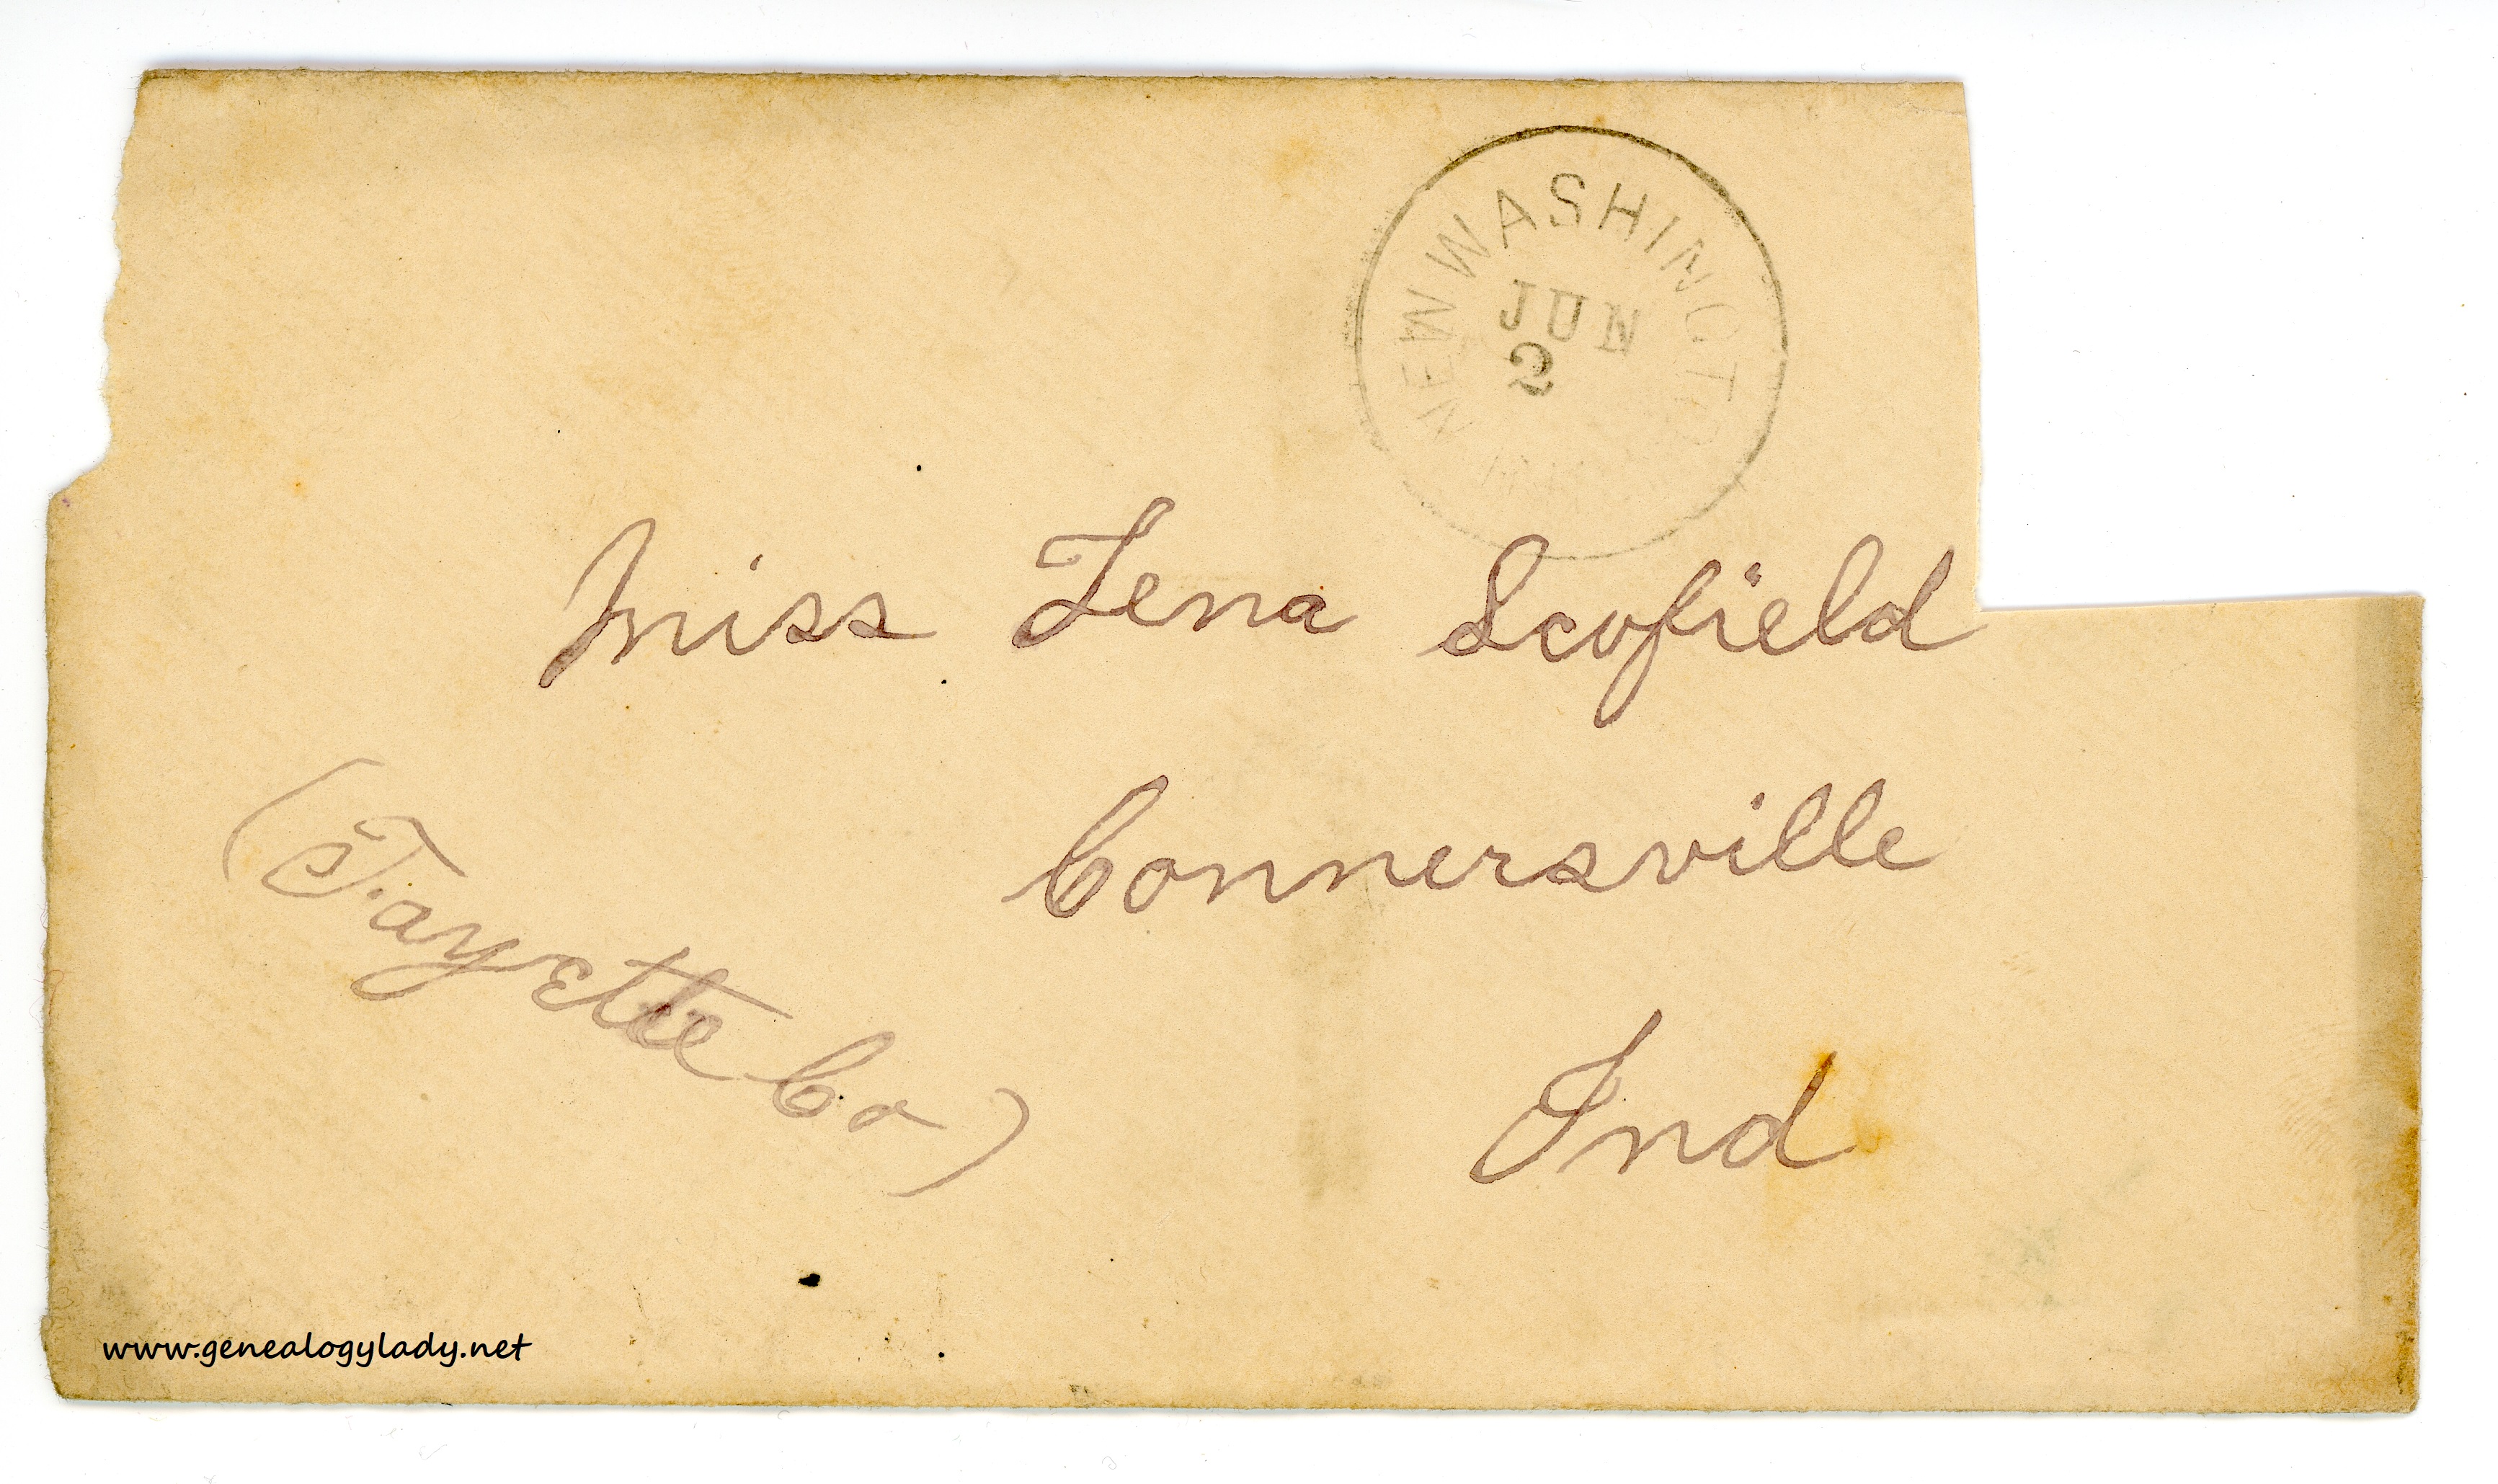 NEW WASHINGTO
JUN
2
Miss Lena Scofield
Connersville
(Fayette Co)
Ind
www.genealogylady.net